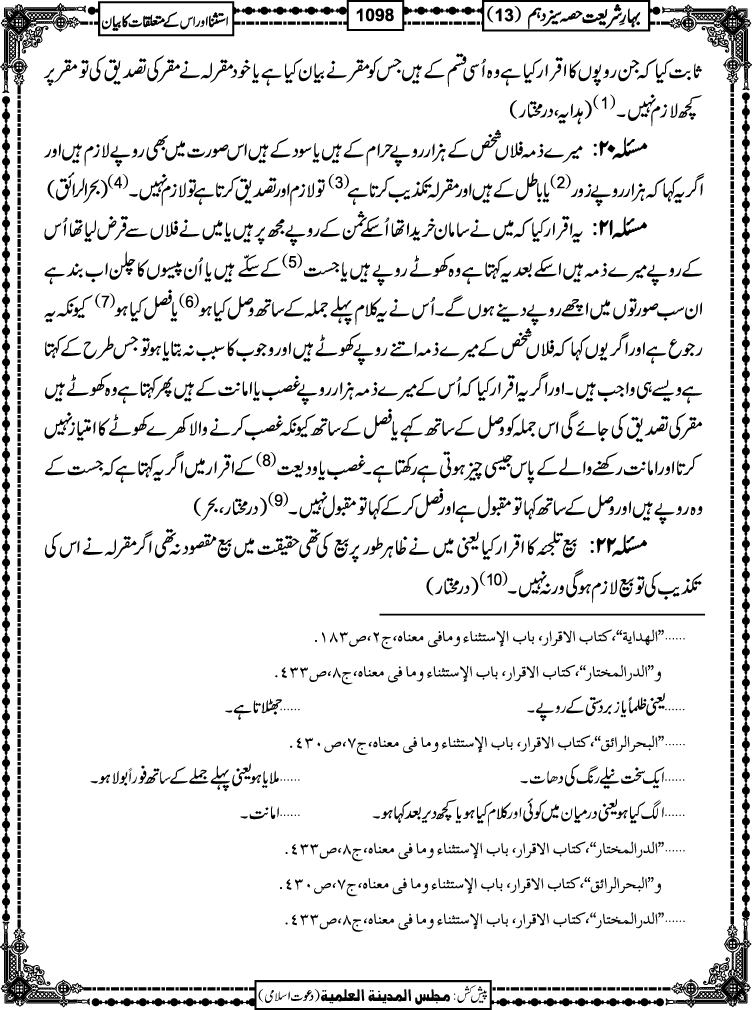 بہارِ شریعت حصہ سیزدہم (13)
1098
استثنا اور اس کے متعلقات کا بیان
ثابت کیا کہ جن روپوں کا اقرار کیا ہے وہ اُسی قسم کے ہیں جس کو مقر نے بیان کیا ہے یا خود مقرلہ نے مقر کی تصدیق کی تو مقر پر
کچھ لازم نہیں۔(1) (ہدایہ، درمختار)
مسئلہ ۲۰: میرے ذمہ فلاں شخص کے ہزار روپے حرام کے ہیں یا سود کے ہیں اس صورت میں بھی روپے لازم ہیں اور
اگر یہ کہا کہ ہزار روپے زور (2) یا باطل کے ہیں اور مقرلہ تکذیب کرتا ہے (3) تو لازم اور تصدیق کرتا ہے تو لازم نہیں۔(4) (بحرالرائق)
مسئلہ ۲۱: یہ اقرار کیا کہ میں نے سامان خریدا تھا اُسکے ثمن کے روپے مجھ پر ہیں یا میں نے فلاں سے قرض لیا تھا اُس
کے روپے میرے ذمہ ہیں اسکے بعد یہ کہتا ہے وہ کھوٹے روپے ہیں یا جست (5) کے سکّے ہیں یا اُن پیسوں کا چلن اب بند ہے
ان سب صورتوں میں اچھے روپے دینے ہوں گے۔ اُس نے یہ کلام پہلے جملہ کے ساتھ وصل کیا ہو (6) یا فصل کیا ہو (7) کیونکہ یہ
رجوع ہے اور اگر یوں کہا کہ فلاں شخص کے میرے ذمہ اتنے روپے کھوٹے ہیں اور وجوب کا سبب نہ بتایا ہو تو جس طرح کے کہتا
ہے ویسے ہی واجب ہیں۔ اور اگر یہ اقرار کیا کہ اُس کے میرے ذمہ ہزار روپے غصب یا امانت کے ہیں پھر کہتا ہے وہ کھوٹے ہیں
مقر کی تصدیق کی جائے گی اس جملہ کو وصل کے ساتھ کہے یا فصل کے ساتھ کیونکہ غصب کرنے والا کھرے کھوٹے کا امتیاز نہیں
کرتا اور امانت رکھنے والے کے پاس جیسی چیز ہوتی ہے رکھتا ہے۔ غصب یا ودیعت (8) کے اقرار میں اگر یہ کہتا ہے کہ جست کے
وہ روپے ہیں اور وصل کے ساتھ کہا تو مقبول ہے اور فصل کر کے کہا تو مقبول نہیں۔(9) (درمختار، بحر)
مسئلہ ۲۲: بیع تلجئہ کا اقرار کیا یعنی میں نے ظاہر طور پر بیع کی تھی حقیقت میں بیع مقصود نہ تھی اگر مقرلہ نے اس کی
تکذیب کی تو بیع لازم ہوگی ورنہ نہیں۔(10) (درمختار)
......”الهداية“، کتاب الاقرار، باب الإستثناء ومافی معناه، ج٢، ص١٨٣.
و”الدرالمختار“، کتاب الاقرار، باب الإستثناء وما فی معناه، ج٨، ص٤٣٣.
......یعنی ظلماً یا زبردستی کے روپے۔ ......جھٹلاتا ہے۔
......”البحرالرائق“، کتاب الاقرار، باب الإستثناء وما فی معناه، ج٧، ص٤٣٠.
......ایک سخت نیلے رنگ کی دھات۔ ......ملایا ہو یعنی پہلے جملے کے ساتھ فوراً بولا ہو۔
......الگ کیا ہو یعنی درمیان میں کوئی اور کلام کیا ہو یا کچھ دیر بعد کہا ہو۔ ......امانت۔
......”الدرالمختار“، کتاب الاقرار، باب الإستثناء وما فی معناه، ج٨، ص٤٣٣.
و”البحرالرائق“، کتاب الاقرار، باب الإستثناء وما فی معناه، ج٧، ص٤٣٠.
......”الدرالمختار“، کتاب الاقرار، باب الإستثناء وما فی معناه، ج٨، ص٤٣٣.
پیش کش: مجلس المدینة العلمیة (دعوتِ اسلامی)